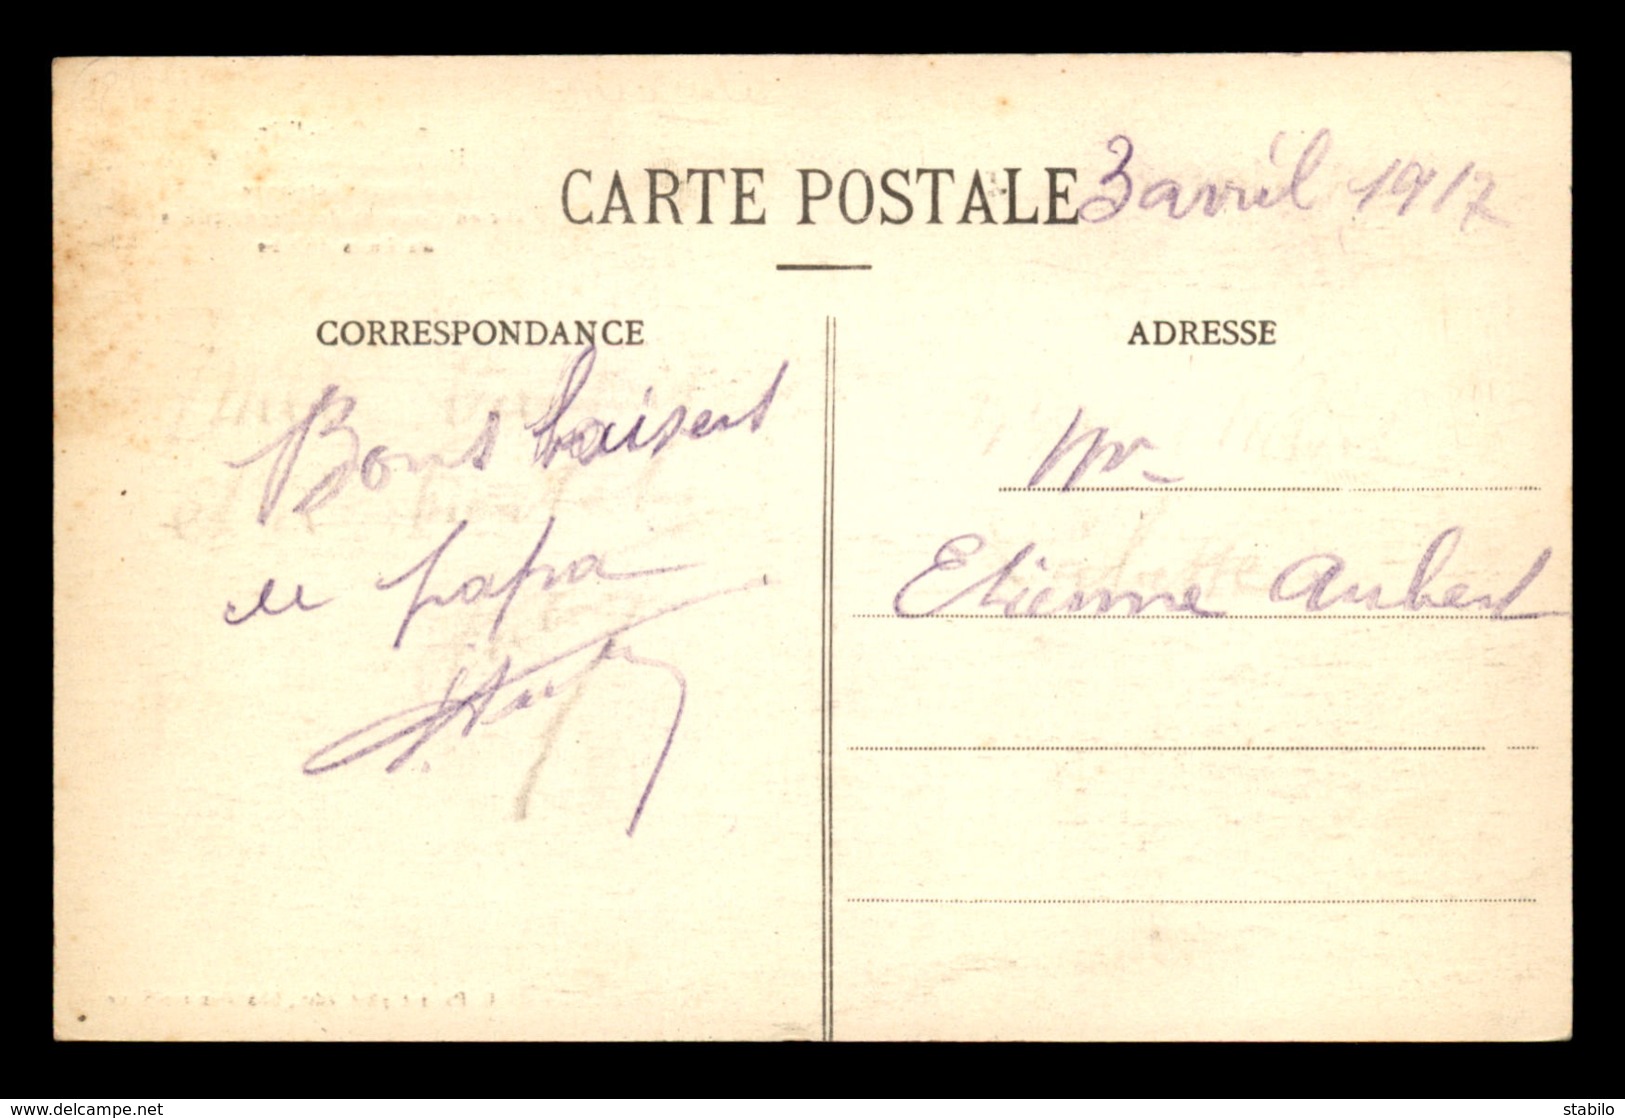 CARTE POSTALE
3 avril 1917
CORRESPONDANCE
Bons baisers
de papa
ADRESSE
Mr
Etienne Aubert
www.delcampe.net
stabilo